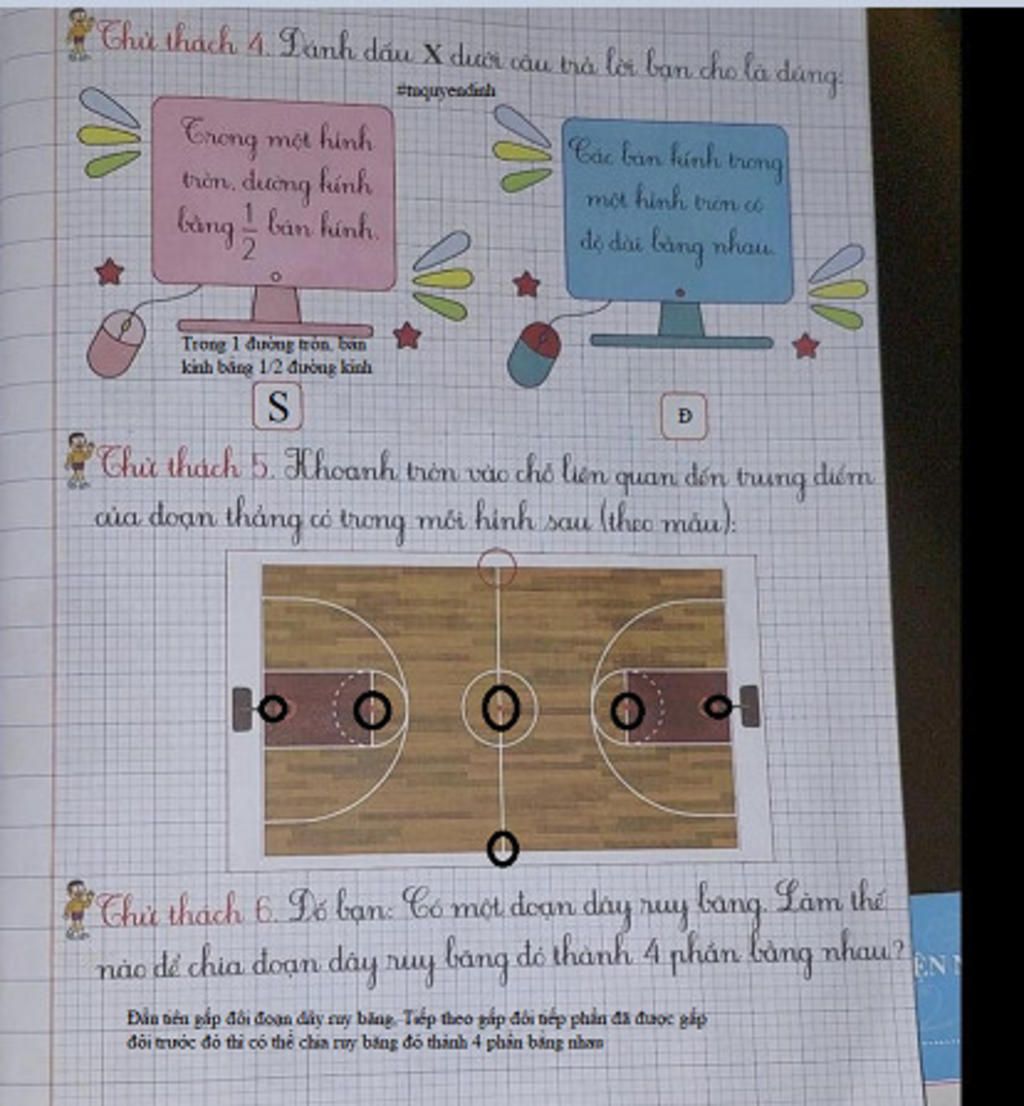 Thử thách 4. Đánh dấu X dưới câu trả lời bạn cho là đúng:
#mquyendinh
Trong một hình
tròn, đường kính
bằng 1/2 bán kính.
Các bán kính trong
một hình tròn có
độ dài bằng nhau.
Trong 1 đường tròn, bán
kính bằng 1/2 đường kính
S
Đ
Thử thách 5. Khoanh tròn vào chỗ liên quan đến trung điểm
của đoạn thẳng có trong mỗi hình sau (theo mẫu):
Thử thách 6. Đố bạn: Có một đoạn dây ruy băng. Làm thế
nào để chia đoạn dây ruy băng đó thành 4 phần bằng nhau?
Đầu tiên gấp đôi đoạn dây ruy băng. Tiếp theo gấp đôi tiếp phần đã được gấp
đôi trước đó thì có thể chia ruy băng đó thành 4 phần bằng nhau